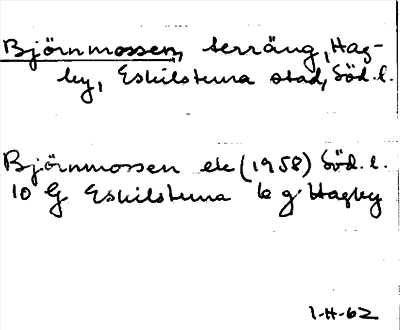 Björnmossen, terräng, Hag-
by, Eskilstuna stad, Söd. l.
Björnmossen ek (1958) Söd. l.
10 G Eskilstuna b g Hagby
1-H-62